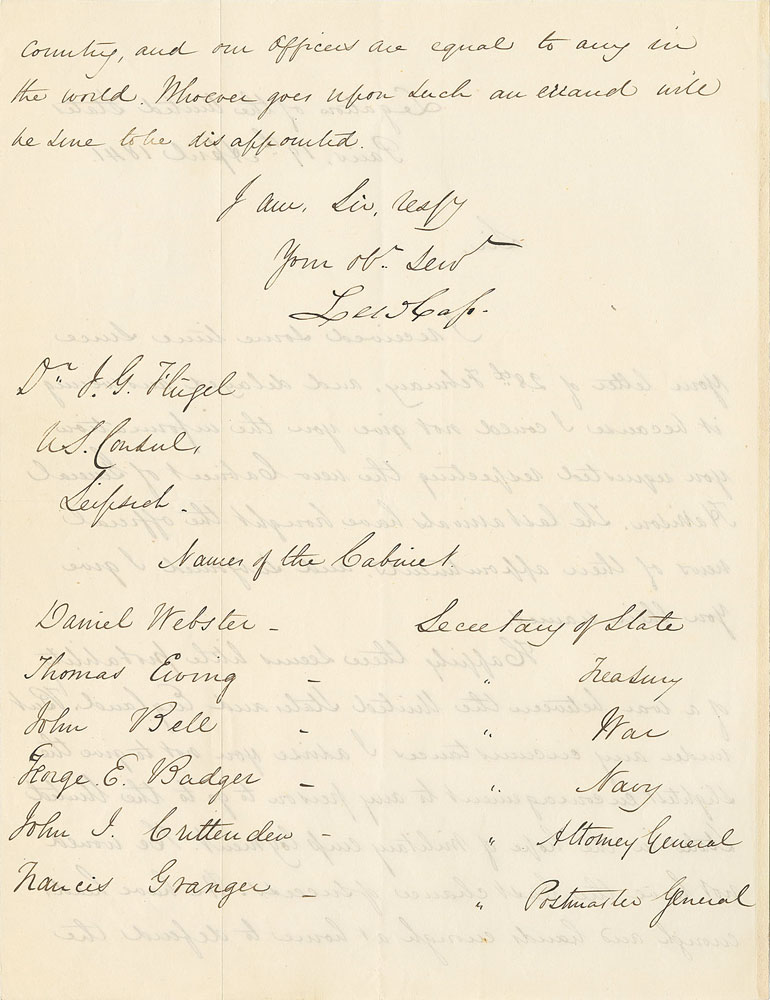 country, and our officers are equal to any in
the world. Whoever goes upon such an errand will
be sure to be disappointed.
I am, Sir, respy
Your obt. Servt
Lew Cass.
Dr. J. G. Flügel
U.S. Consul,
Leipsich.
Names of the Cabinet.
Daniel Webster - Secretary of State
Thomas Ewing - " Treasury
John Bell - " War
George. E. Badger - " Navy
John J. Crittenden - " Attorney General
Francis Granger - " Postmaster General